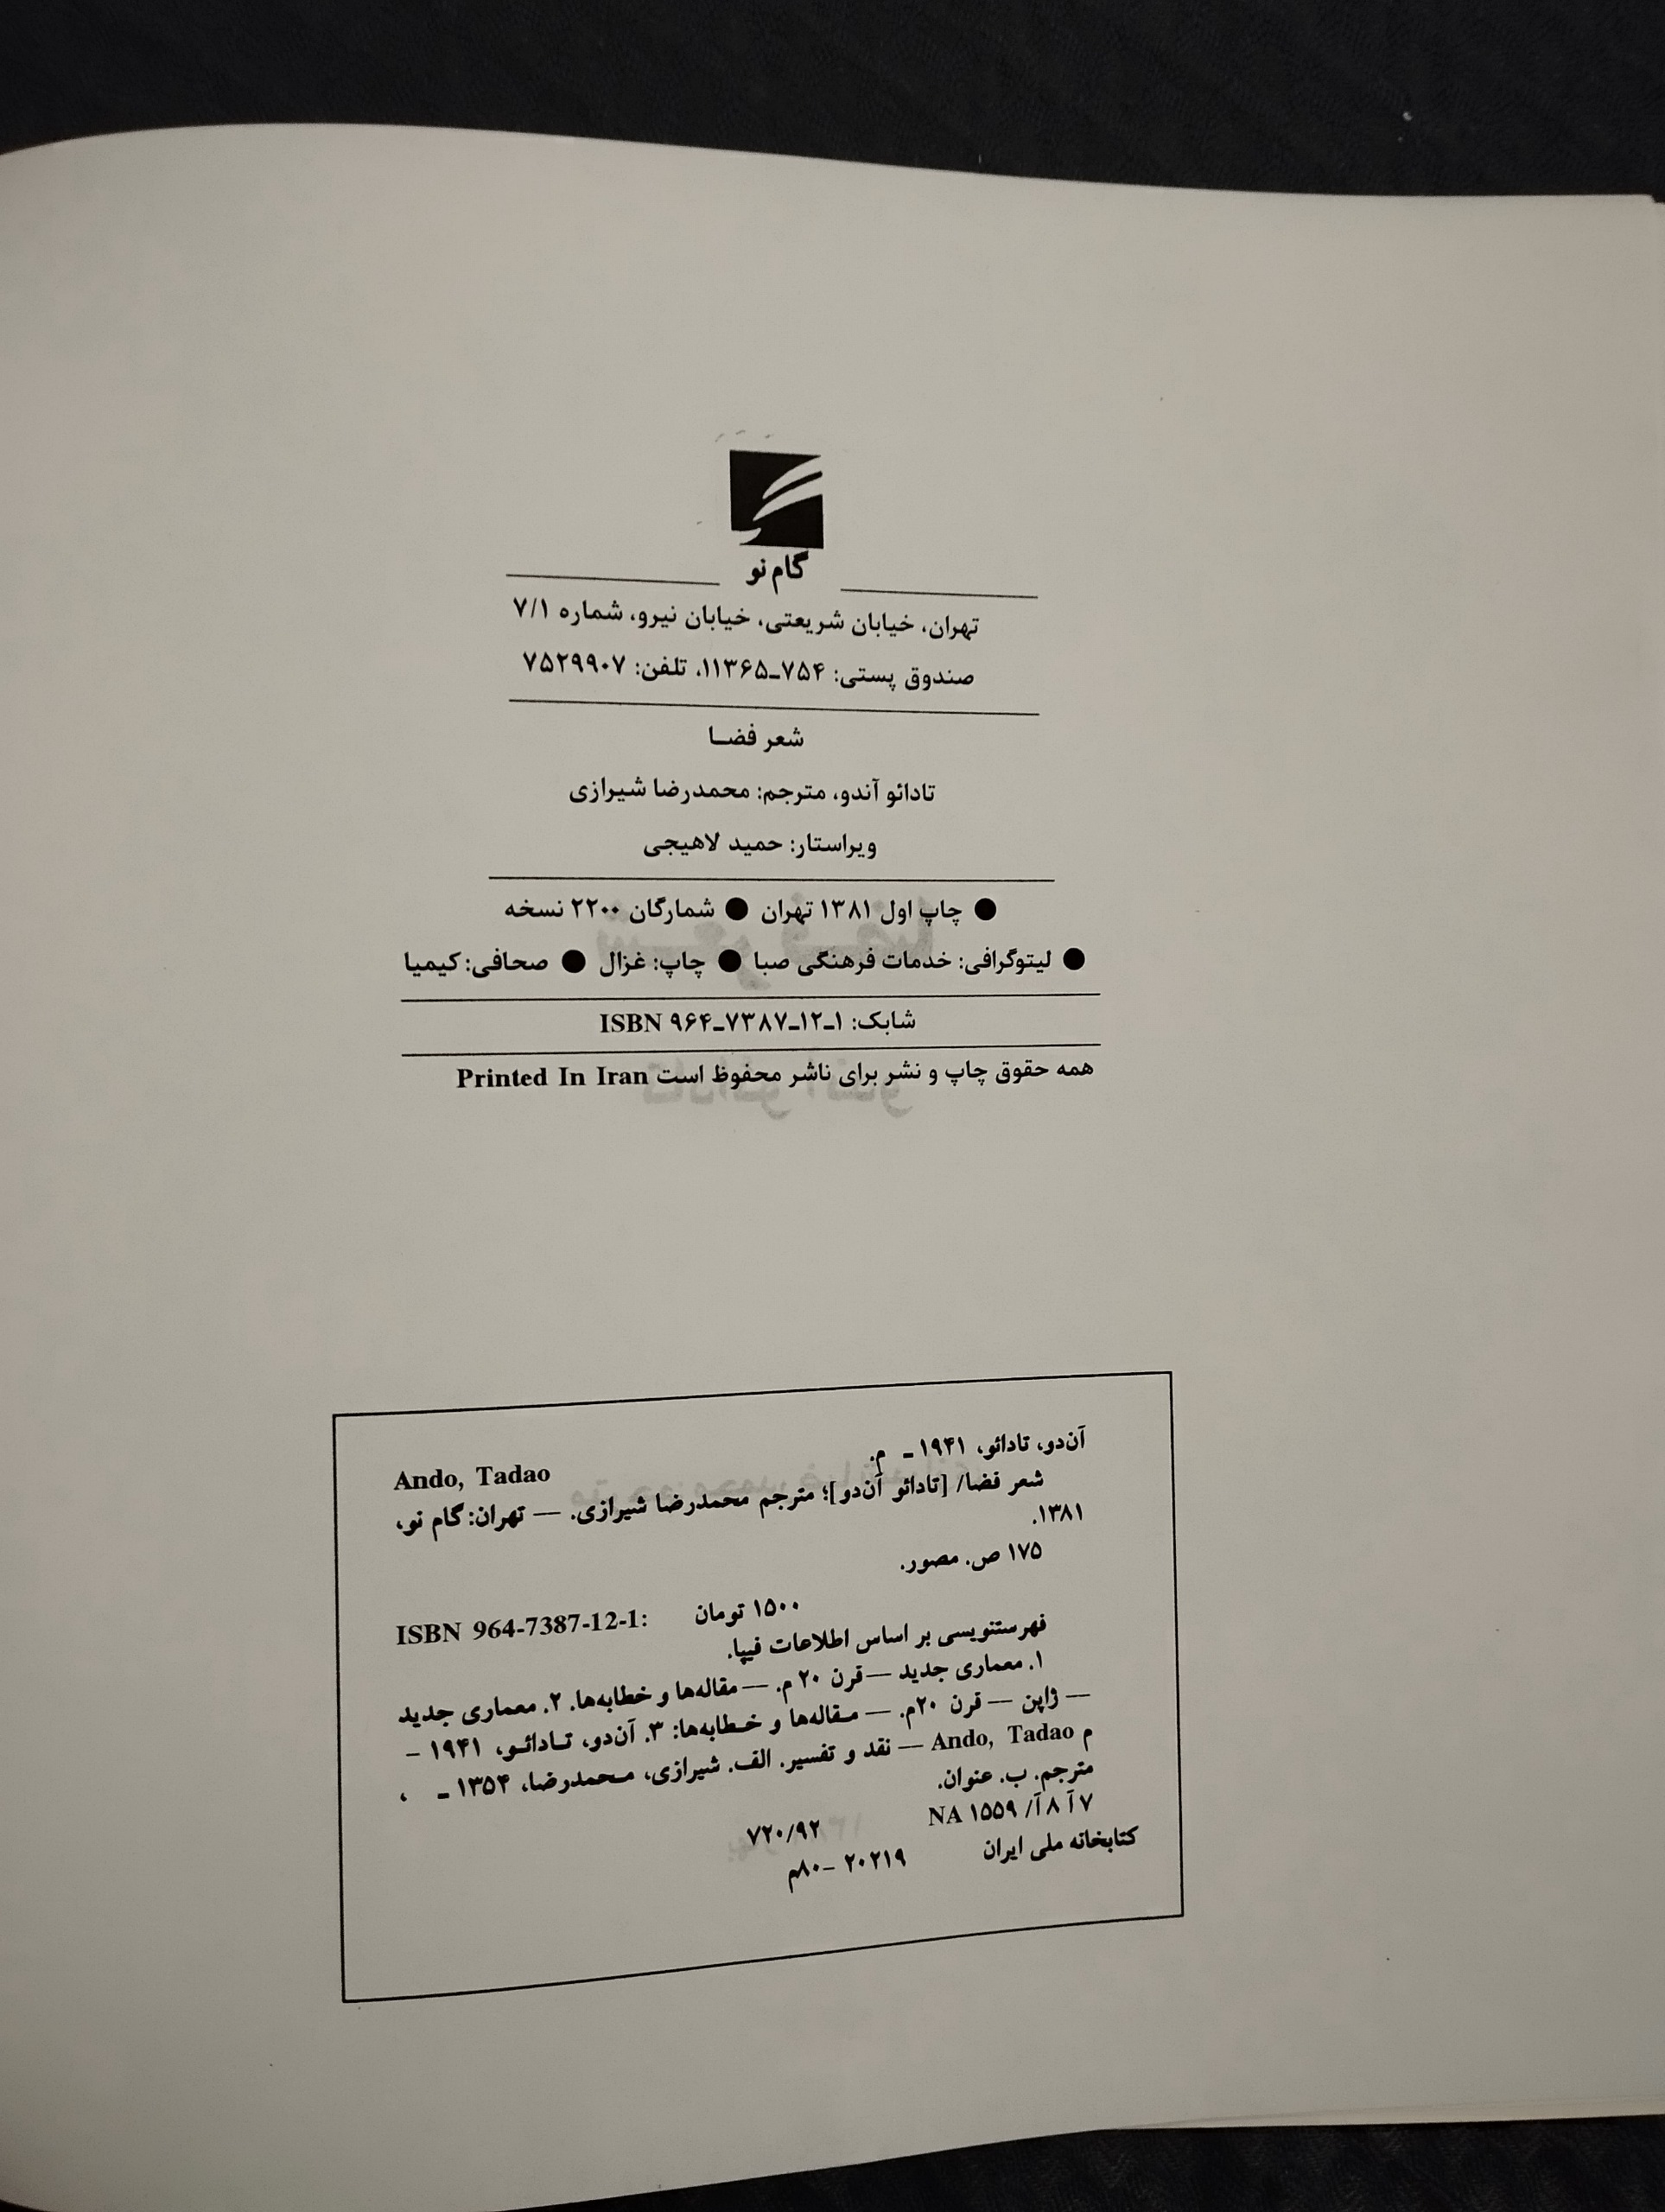 گام نو
تهران، خیابان شریعتی، خیابان نیرو، شماره ۷/۱
صندوق پستی: ۷۵۴ـ۱۱۳۶۵، تلفن: ۷۵۲۹۹۰۷
شعر فضـا
تادائو آندو، مترجم: محمدرضا شیرازی
ویراستار: حمید لاهیجی
● چاپ اول ۱۳۸۱ تهران ● شمارگان ۲۲۰۰ نسخه
● لیتوگرافی: خدمات فرهنگی صبا ● چاپ: غزال ● صحافی: کیمیا
شابک: ۱ـ۱۲ـ۷۳۸۷ـ۹۶۴ ISBN
همه حقوق چاپ و نشر برای ناشر محفوظ است Printed In Iran
آن‌دو، تادائو، ۱۹۴۱ ـ م. Ando, Tadao
شعر فضا/ [تادائو آن‌دو]؛ مترجم محمدرضا شیرازی. — تهران: گام نو،
۱۳۸۱.
۱۷۵ ص. مصور.
۱۵۰۰ تومان ISBN 964-7387-12-1:
فهرستنویسی بر اساس اطلاعات فیپا.
۱. معماری جدید — قرن ۲۰ م. — مقاله‌ها و خطابه‌ها. ۲. معماری جدید
— ژاپن — قرن ۲۰م. — مـقاله‌ها و خـطابه‌ها: ۳. آن‌دو، تـادائـو، ۱۹۴۱ –
م Ando, Tadao — نقد و تفسیر. الف. شیرازی، مـحمدرضا، ۱۳۵۴ ـ ،
مترجم. ب. عنوان.
۷ آ ۸ آ/ ۱۵۵۹ NA ۷۲۰/۹۲
کتابخانه ملی ایران ۲۰۲۱۹ –۸۰م